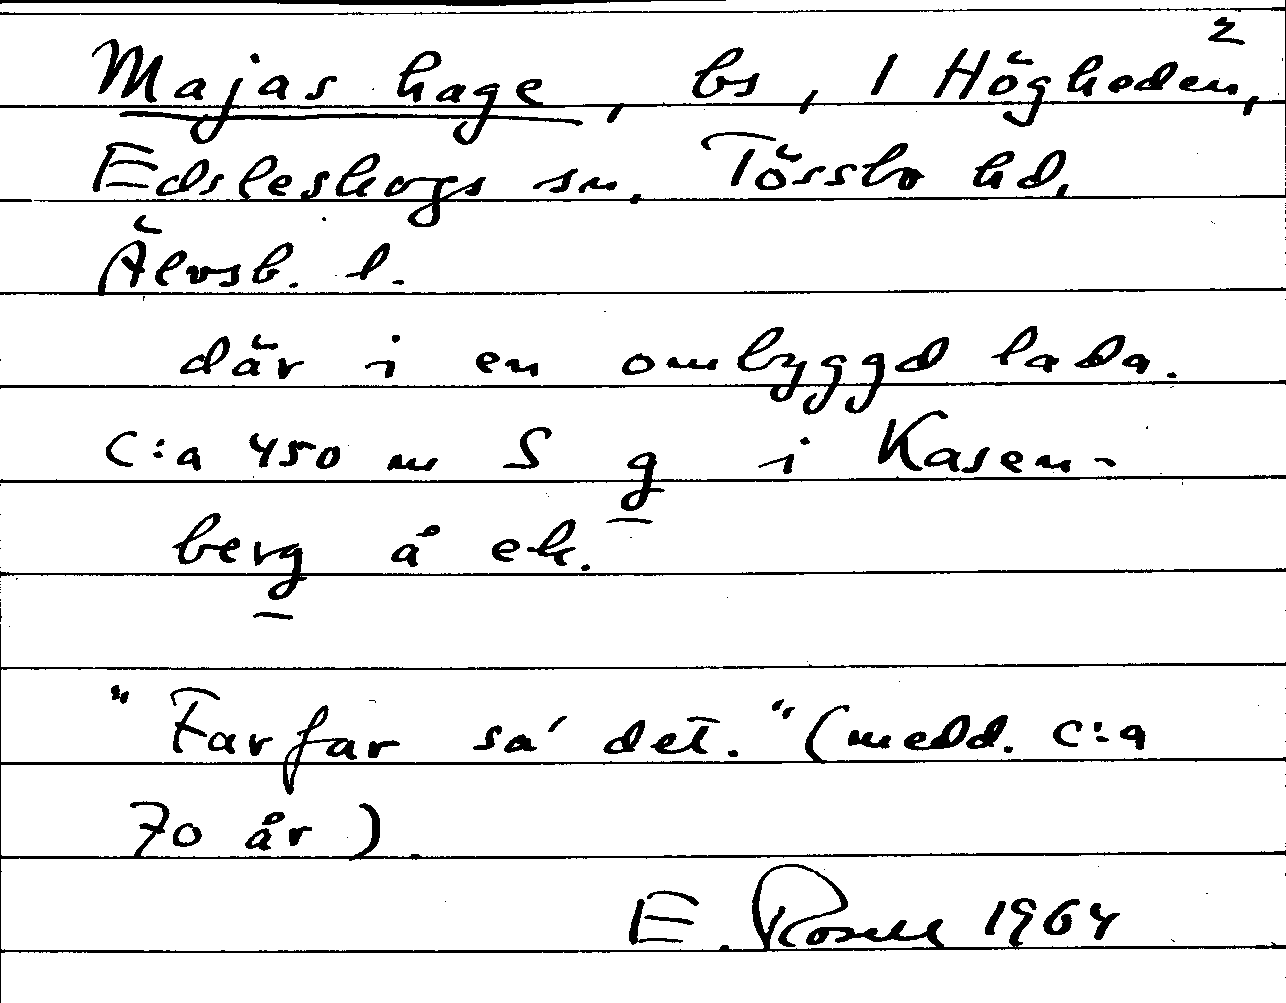 Majas hage, bs, 1 Högheden²,
Edsleskogs sn. Tössbo hd,
Älvsb. l.
där i en ombyggd lada.
C:a 450 m S g i Kasen-
berg å ek.
"Farfar sa' det." (medd. c:a
70 år)
E. Rosell 1964